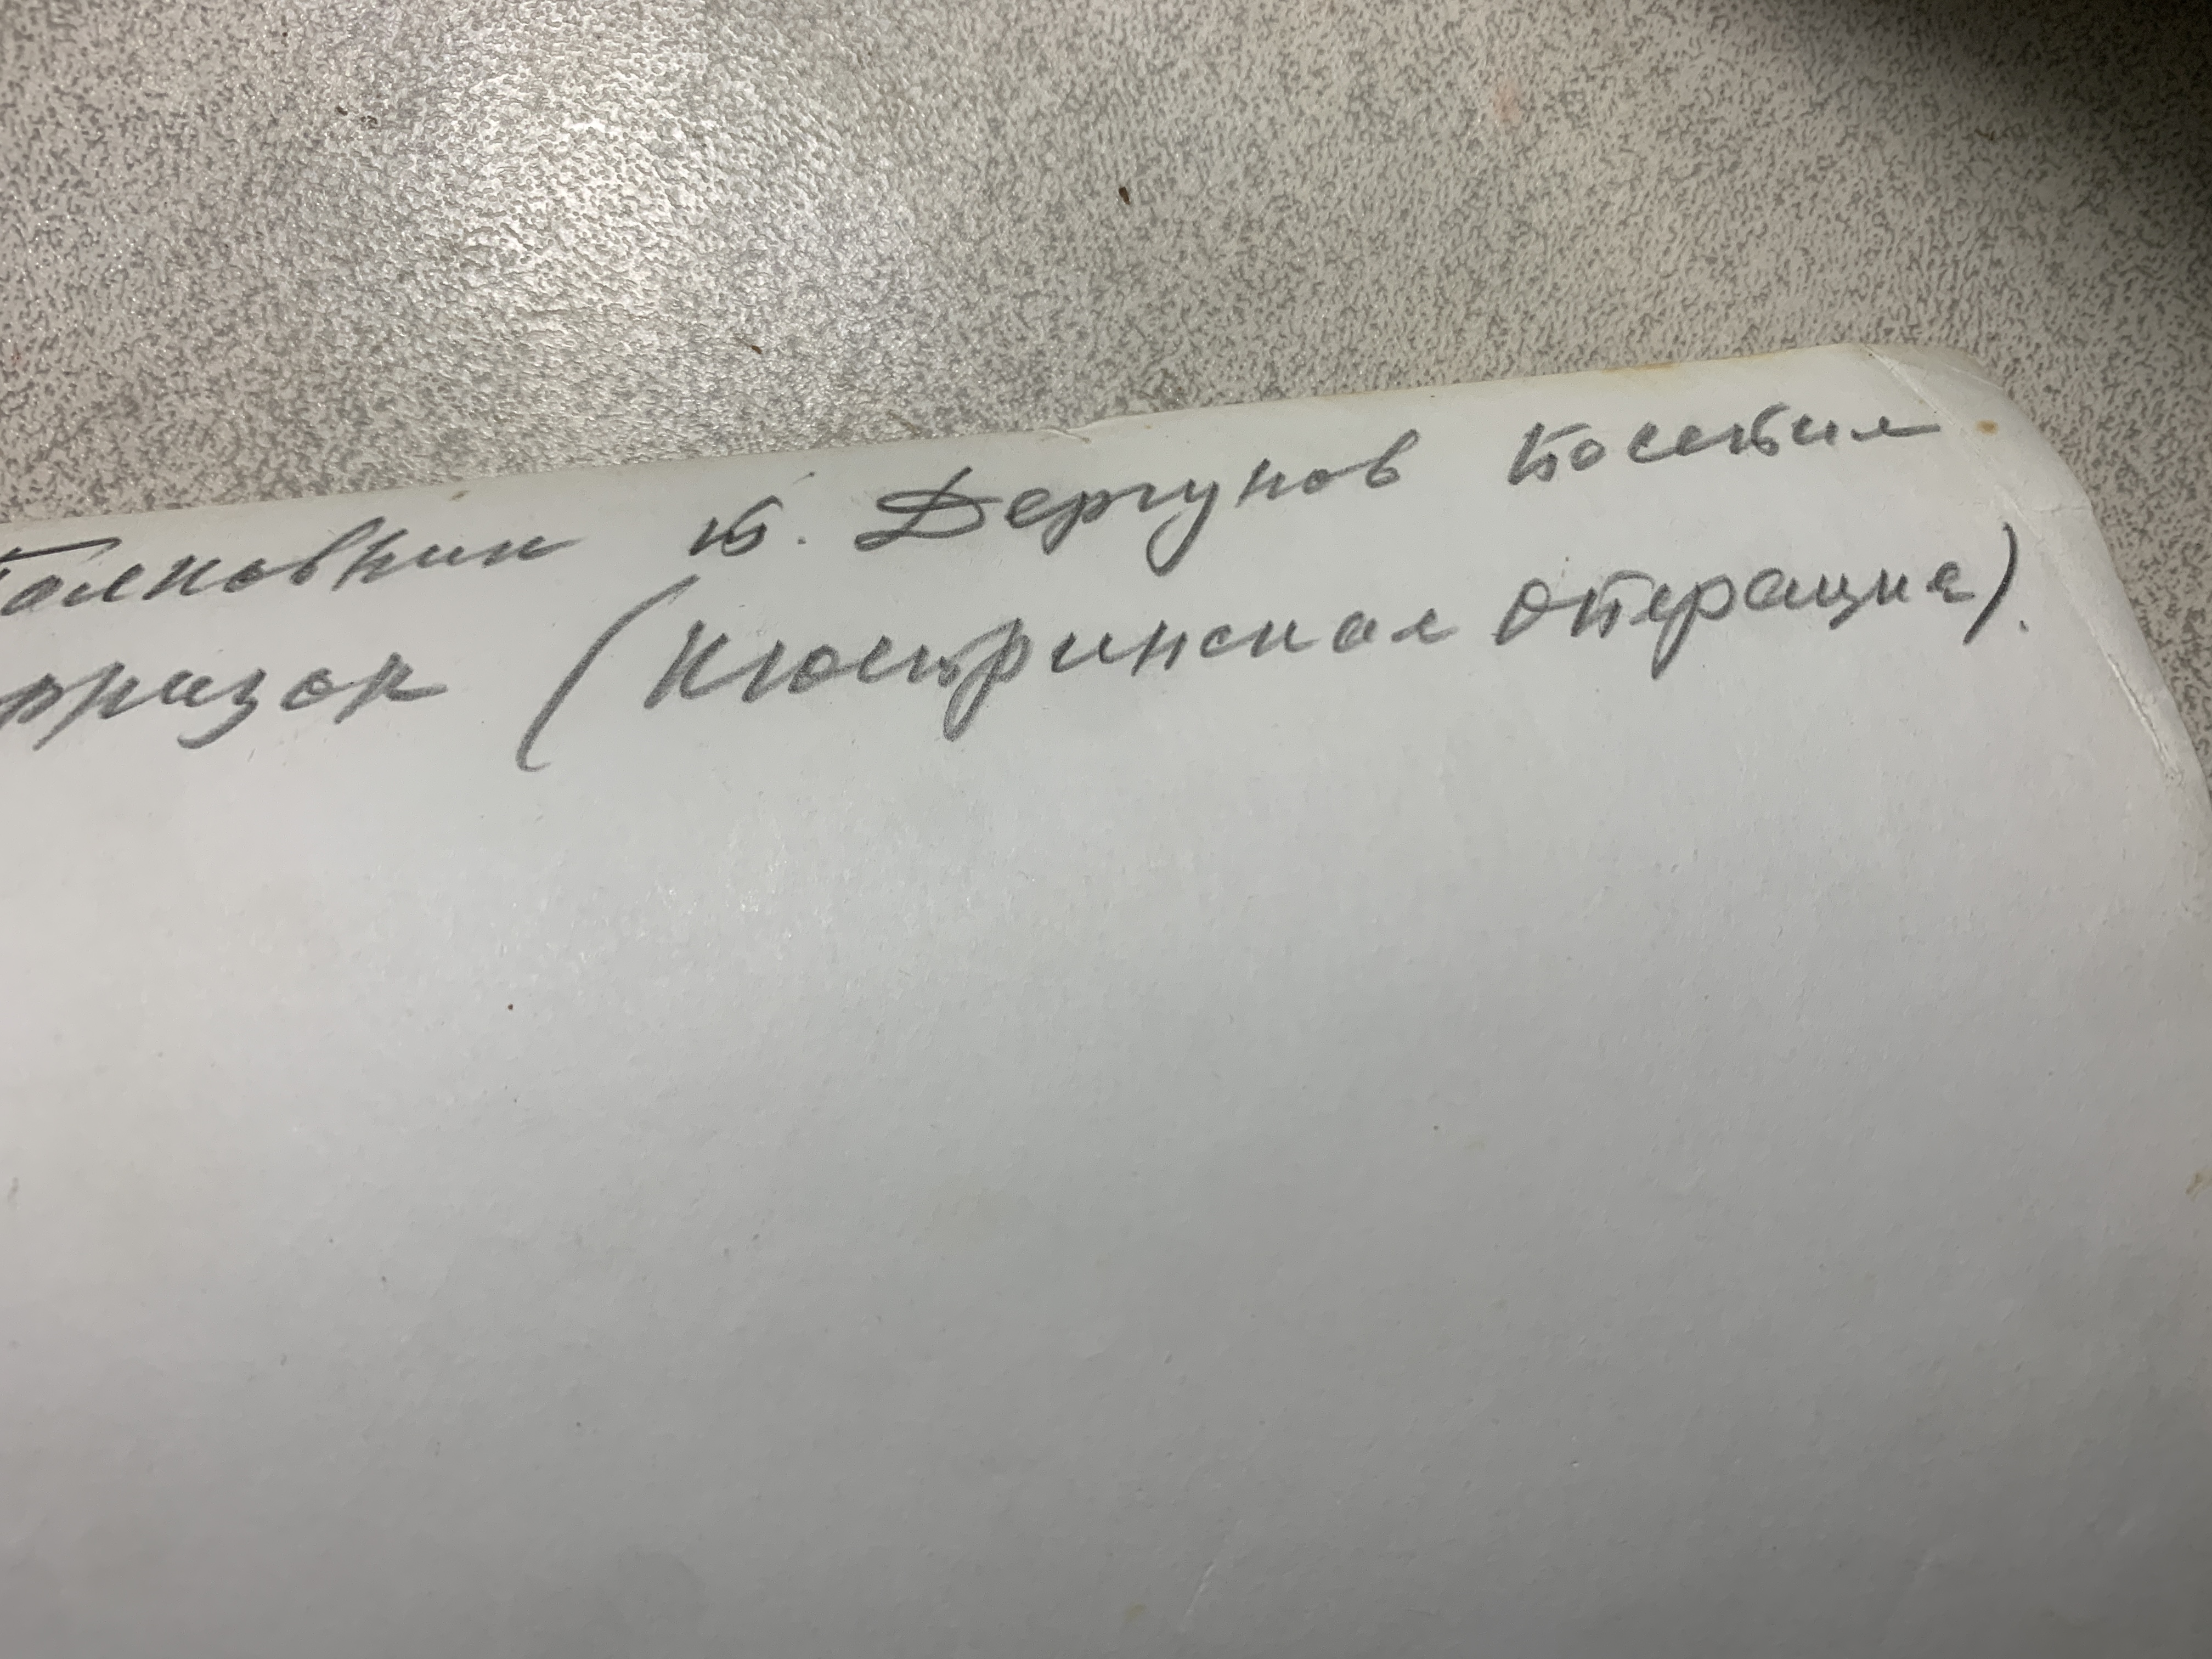 Полковник т. Дергунов посетил
рнизон (Кюстринская операция).